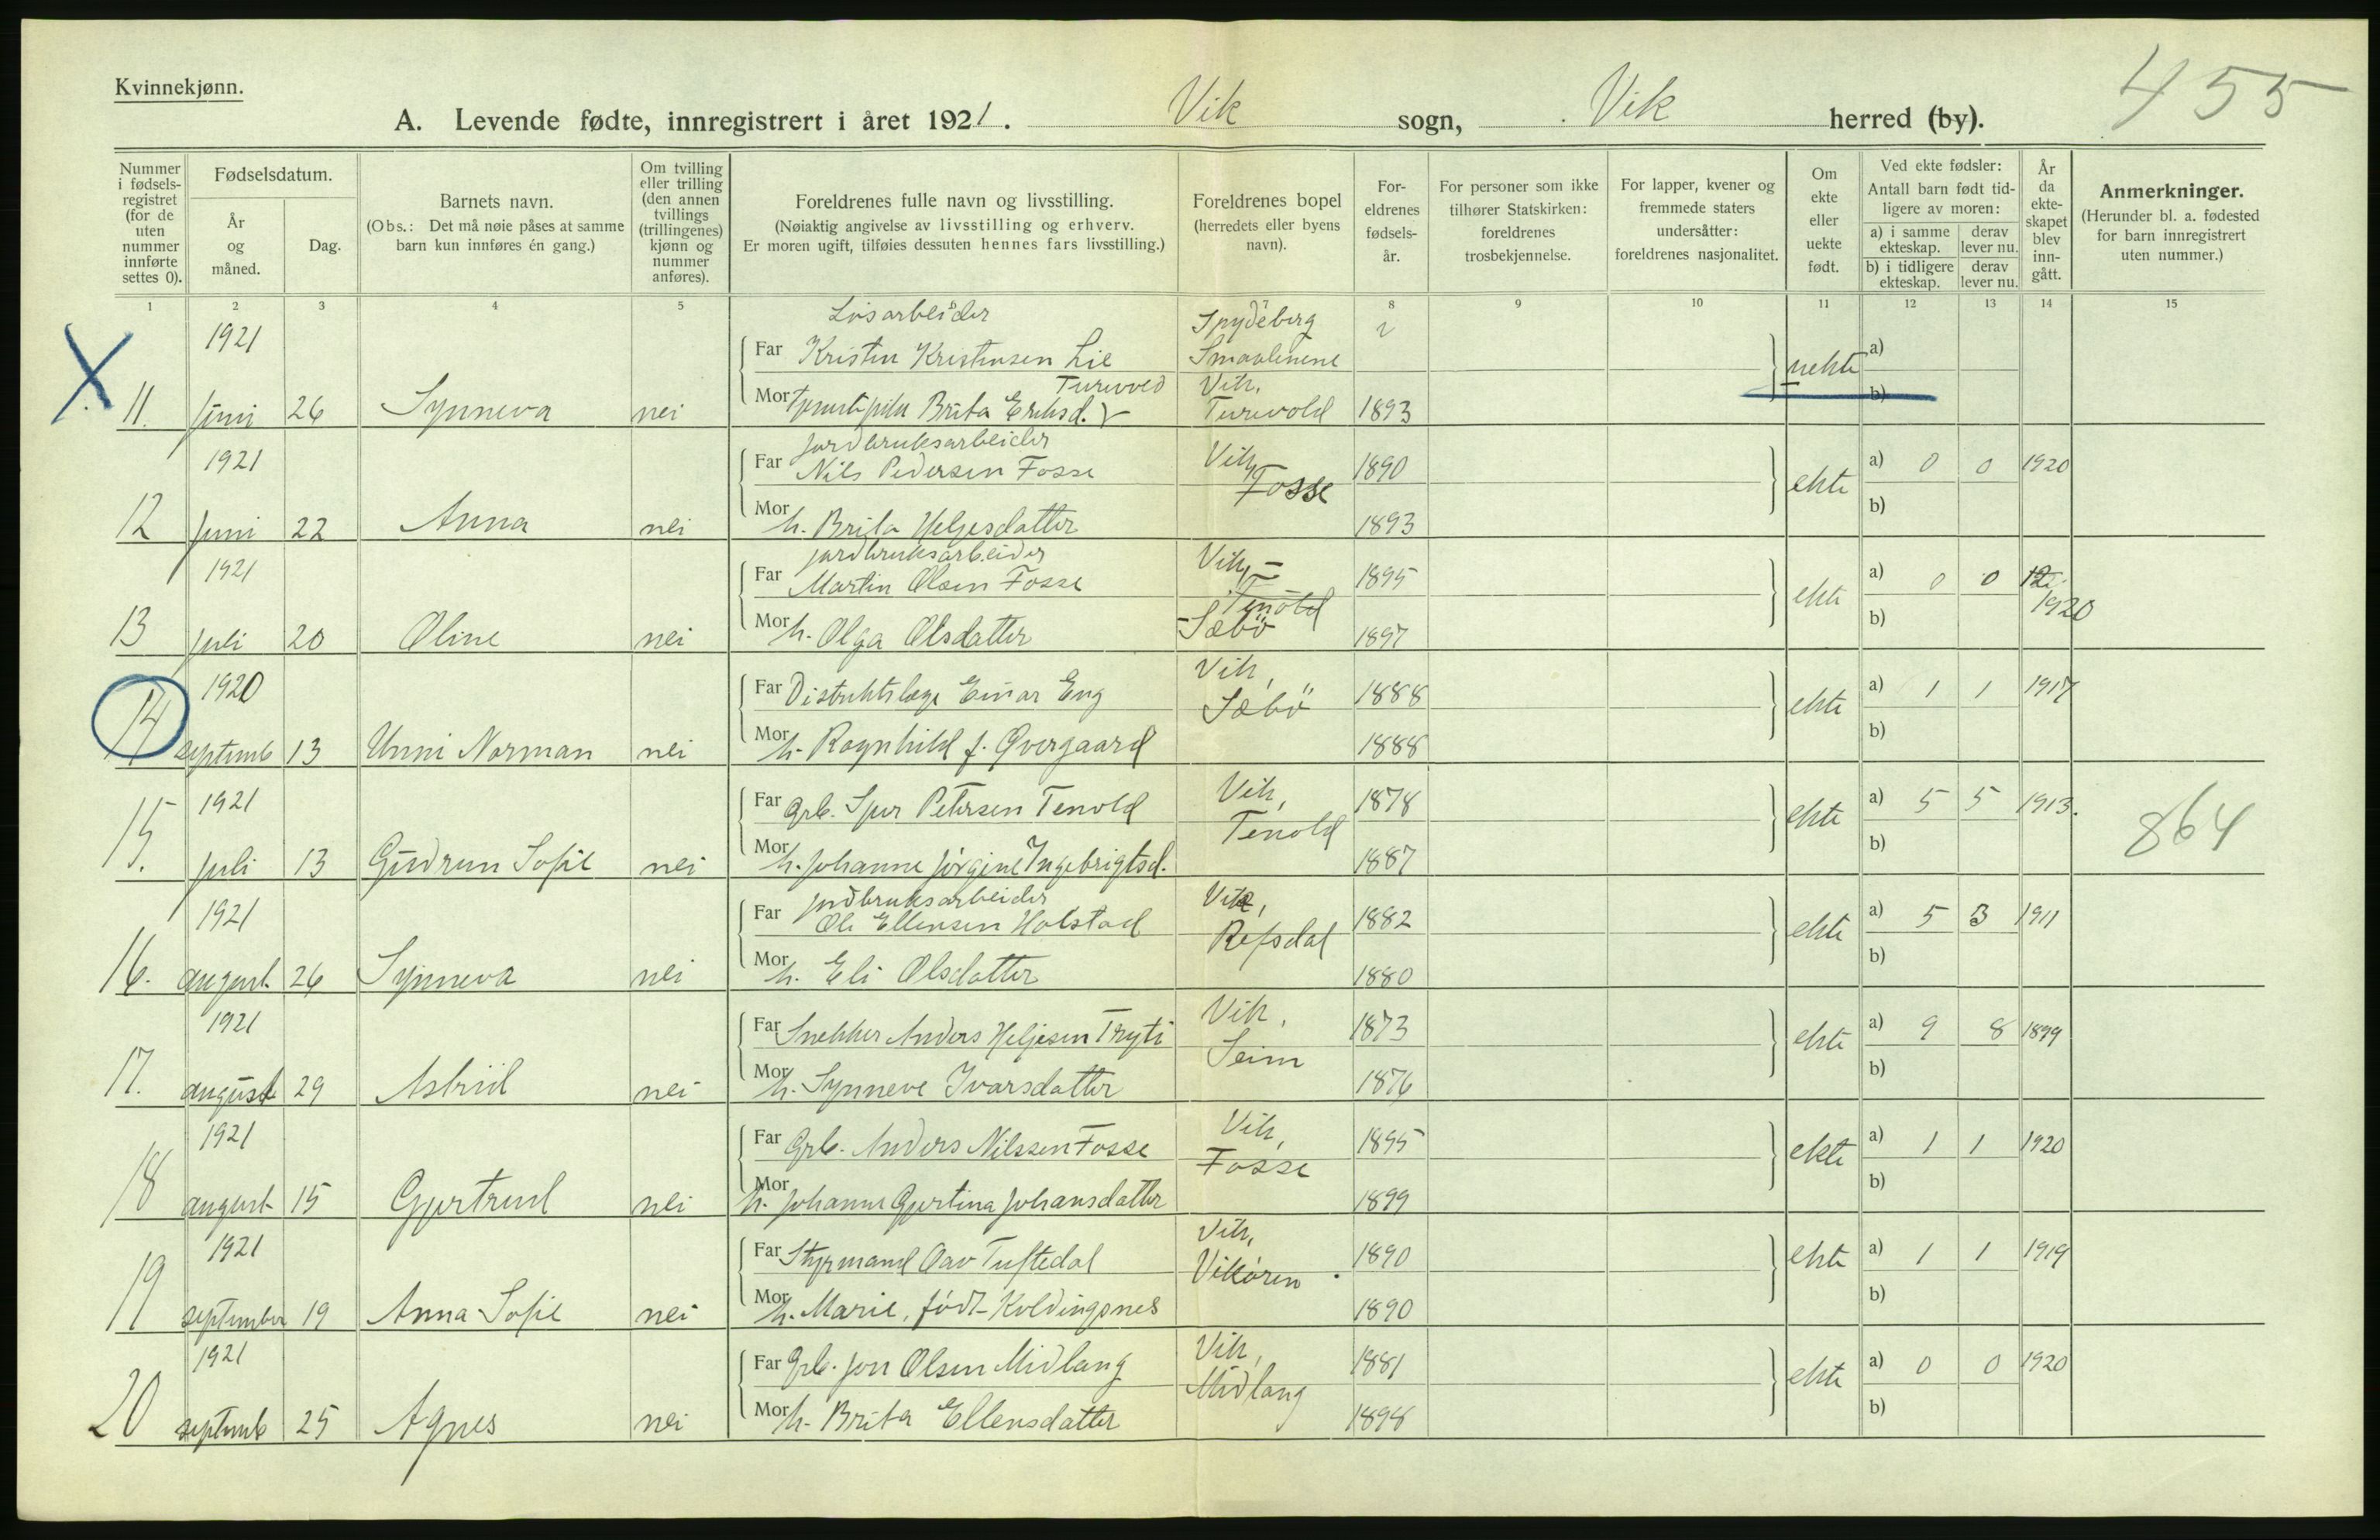 Kvinnekjønn.
455
A. Levende fødte, innregistrert i året 1921. Vik sogn, Vik herred (by).
Nummer i fødsels-registret (for de uten nummer innførte settes 0).
Fødselsdatum.
År og måned.
Dag.
Barnets navn.
(Obs.: Det må nøie påses at samme barn kun innføres én gang.)
Om tvilling eller trilling (den annen tvillings (trillingenes) kjønn og nummer anføres).
Foreldrenes fulle navn og livsstilling.
(Nøiaktig angivelse av livsstilling og erhverv. Er moren ugift, tilføies dessuten hennes fars livsstilling.)
Foreldrenes bopel (herredets eller byens navn).
For-eldrenes fødsels-år.
For personer som ikke tilhører Statskirken: foreldrenes trosbekjennelse.
For lapper, kvener og fremmede staters undersåtter: foreldrenes nasjonalitet.
Om ekte eller uekte født.
Ved ekte fødsler:
Antall barn født tid-ligere av moren:
a) i samme ekteskap.
derav lever nu.
b) i tidligere ekteskap.
derav lever nu.
År da ekte-skapet blev inn-gått.
Anmerkninger.
(Herunder bl. a. fødested for barn innregistrert uten nummer.)
1 2 3 4 5 6 7 8 9 10 11 12 13 14 15
X 11. 1921 juni 26 Synneva nei
Løsarbeider
Far Kristen Kristensen Lie Spydeberg Smaalenene
Mor Brita Eriksd. Turvold Vik, Turvold 1893
uekte a) b)
12 1921 juni 22 Anna nei
jordbruksarbeider
Far Nils Pedersen Fosse Vik, Fosse 1890
Mor h. Brita Helgesdatter 1893
ekte a) 0 0 1920 b)
13 1921 juli 20 Oline nei
jordbruksarbeider
Far Martin Olsen Fosse Vik, Tenold Sæbö 1895
Mor h. Olga Olsdatter 1897
ekte a) 0 0 1920 b)
14 1920 septemb 13 Unni Norman nei
Far Distriktslæge Einar Eng Vik, Sæbö 1888
Mor h. Ragnhild f. Øvergaard 1888
ekte a) 1 1 1917 b)
15. 1921 juli 13 Gudrun Sofie nei
Far Grb. Sjur Petersen Tenold Vik, Tenold 1878
Mor h. Johanne Jörgine Ingebrigtsd. 1887
ekte a) 5 5 1913. b) 864
16. 1921 august 26 Synneva nei
jordbruksarbeider
Far Ole Ellensen Holstad Vik, Refsdal 1882
Mor h. Eli Olsdatter 1880
ekte a) 5 3 1911 b)
17. 1921 august 29 Astrid nei
Far Snekker Anders Helgesen Tryti Vik, Seim 1873
Mor h. Synneve Ivarsdatter 1876
ekte a) 9 8 1899 b)
18 1921 august 15 Gjertrud nei
Far Grb. Anders Nilssen Fosse Vik, Fosse 1895
Mor h. Johanne Gjertina Johansdatter 1899
ekte a) 1 1 1920 b)
19 1921 september 19 Anna Sofie nei
Far Styrmand Oav Tuftedal Vik, Vikören 1890
Mor h. Marie, födt Koldingsnes 1890
ekte a) 1 1 1919 b)
20 1921 septemb 25 Agnes nei
Far Grb. Jon Olsen Midlang Vik, Midlang 1881
Mor h. Brita Ellensdatter 1898
ekte a) 0 0 1920 b)